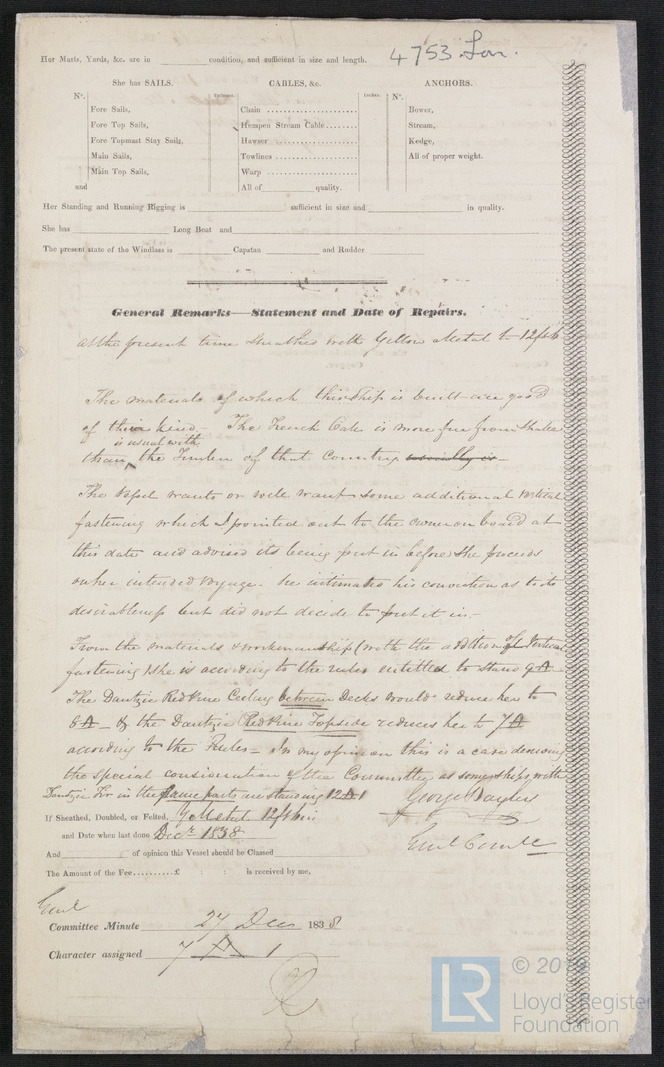 4753 Lon.
Her Masts, Yards, &c. are in ________ condition, and sufficient in size and length.
She has SAILS. CABLES, &c. ANCHORS.
Nº. Fathoms. Inches. Nº.
Fore Sails, Chain Bower,
Fore Top Sails, Hempen Stream Cable Stream,
Fore Topmast Stay Sails, Hawser Kedge,
Main Sails, Towlines All of proper weight.
Main Top Sails, Warp
and All of ________ quality.
Her Standing and Running Rigging is ________ sufficient in size and ________ in quality.
She has ________ Long Boat and ________
The present state of the Windlass is ________ Capstan ________ and Rudder ________
General Remarks—Statement and Date of Repairs.
at the present time Sheathed with Yellow Metal to 12/ft 6
The materials of which this Ship is built are good
of their kind. The French Oak is more free from Shakes
is usual with
than the Timber of that Country
The Vessel wants or will want some additional vertical
fastening which I pointed out to the owner on board at
this date and advised its being put in before She proceeds
on her intended Voyage. he intimates his conviction as to its
desirableness but did not decide to put it in.
From the materials & workmanship (with the addition of Vertical
fastening) she is according to the rules entitled to stand 9 A
The Dantzic Red Pine Ceeling between Decks would reduce her to
8 A & the Dantzic Red Pine Topside reduces her to 7 A
according to the Rules = In my opinion this is a case deserving
the special consideration of the Committee as some ships with
Dantzic Fir in the same parts are standing 12 A 1
George Bayley
If Sheathed, Doubled, or Felted, Y Metal 12/ft 6 in
and Date when last done Decr 1838
And ________ of opinion this Vessel should be Classed ________
The Amount of the Fee..........£ : : is received by me,
Committee Minute 27 Decr 1838
Character assigned 7 A 1
LR © 2019
Lloyd's Register
Foundation